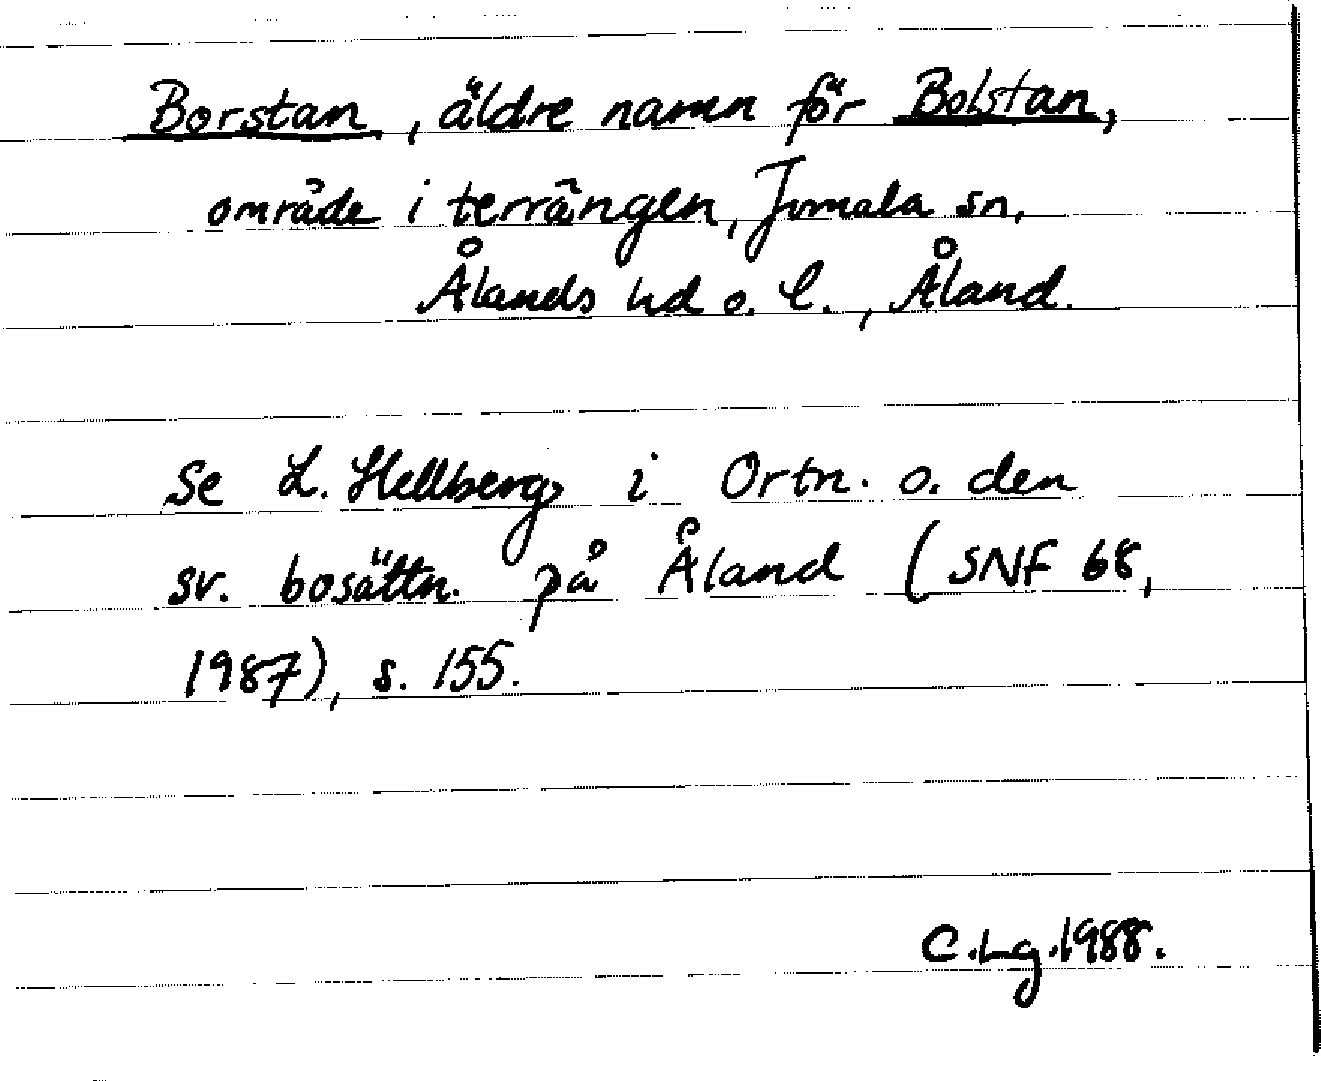 Borstan, äldre namn för Bolstan,
område i terrängen, Jomala sn,
Ålands hd o. l., Åland.
Se L. Hellberg i Ortn. o. den
sv. bosättn. på Åland (SNF 68,
1987), s. 155.
C.Lg.1988.